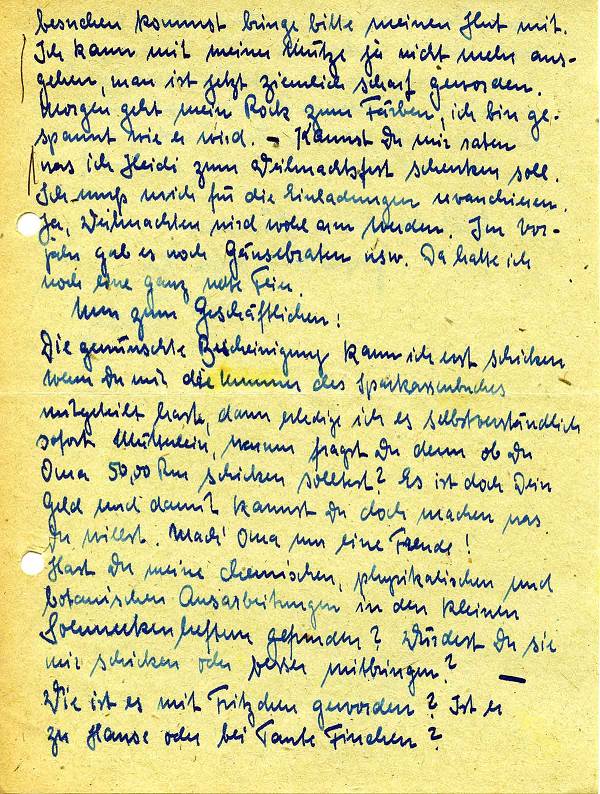 besuchen kommst bringe bitte meinen Hut mit.
Ich kann mit meiner Mütze ja nicht mehr aus-
gehen, man ist jetzt ziemlich scharf geworden.
Morgen geht mein Rock zum Färben, ich bin ge-
spannt wie er wird. – Kannst Du mir raten
was ich Heidi zum Weihnachtsfest schenken soll.
Ich muß mich für die Einladungen revanchieren.
Ja, Weihnachten wird wohl arm werden. Im Vor-
jahr gab es noch Gänsebraten usw. Da hatte ich
noch eine ganz nette Feier.
Nun zum Geschäftlichen!
Die gewünschte Bescheinigung kann ich erst schicken
wenn Du mir die Nummer des Sparkassenbuches
mitgeteilt hast, dann erledige ich es selbstverständlich
sofort. Mütterlein, warum fragst Du denn ob du
Oma 50,00 Rm schicken solltest? Es ist doch Dein
Geld und damit kannst du doch machen was
Du willst. Mach' Oma nur eine Freude!
Hast Du meine chemischen, physikalischen und
botanischen Ausarbeitungen in den kleinen
Soenneckenheftern gefunden? Würdest Du sie
mir schicken oder besser mitbringen? —
Wie ist es mit Fritzchen geworden? Ist er
zu Hause oder bei Tante Finchen?